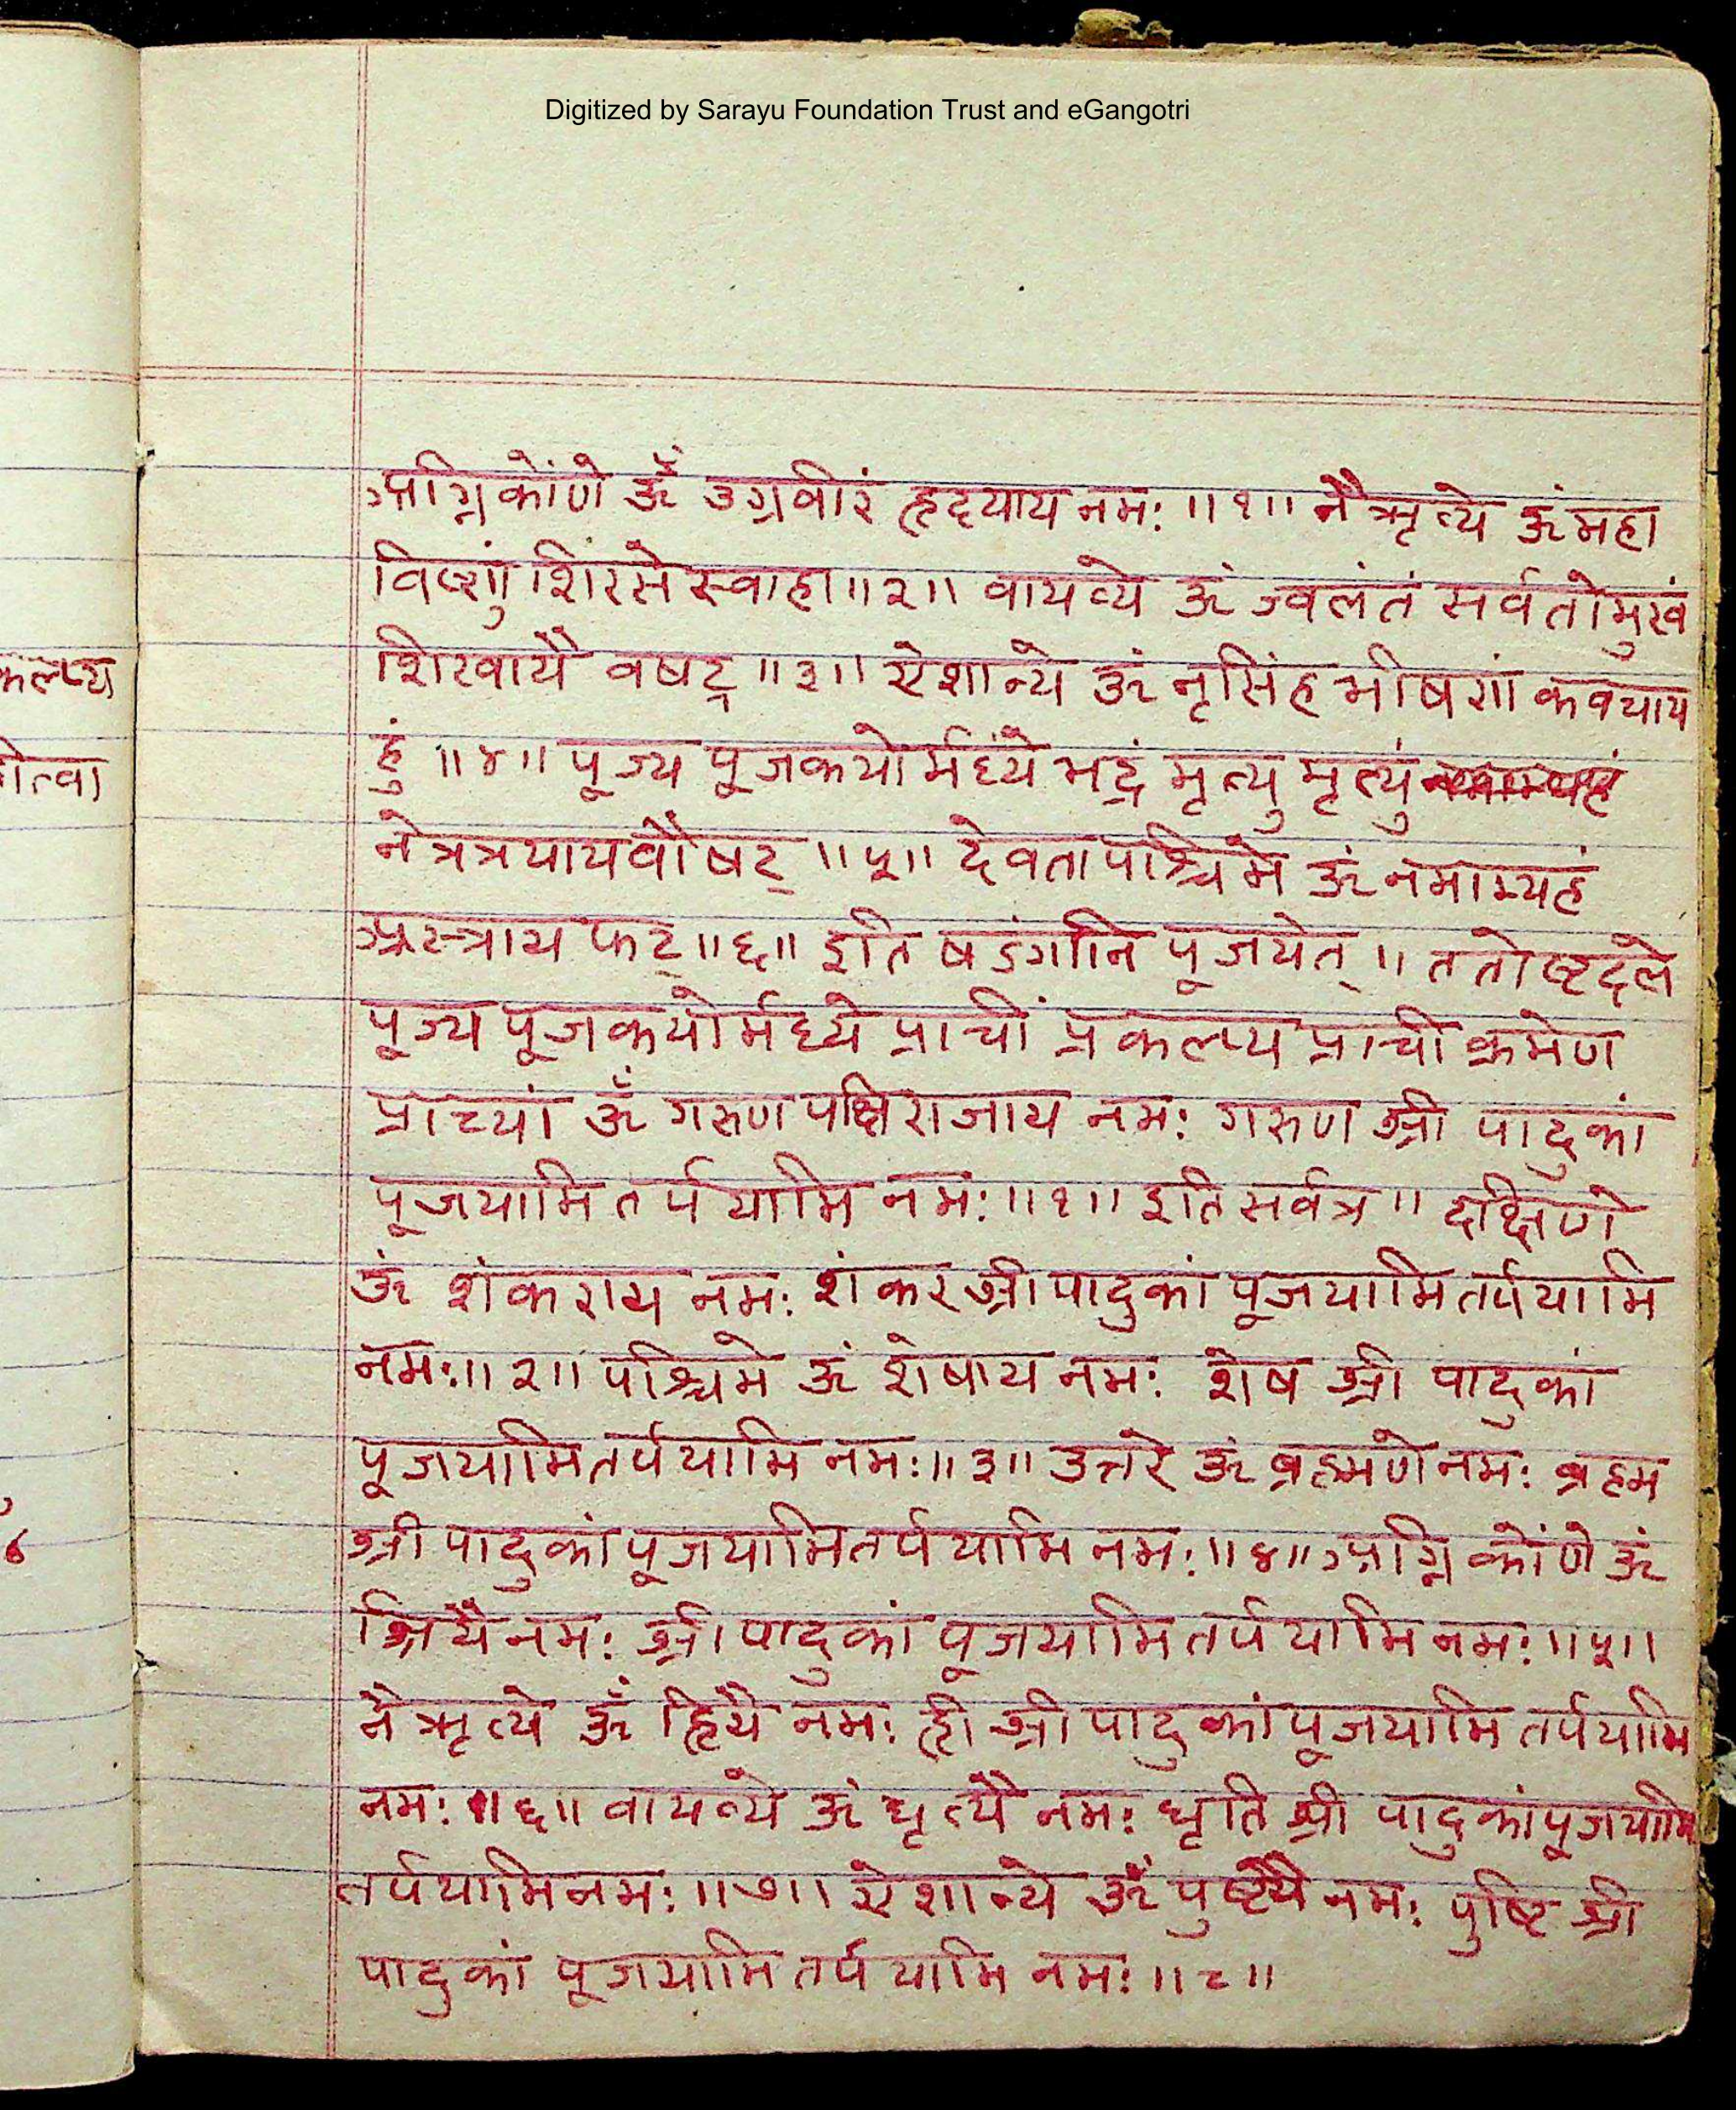 Digitized by Sarayu Foundation Trust and eGangotri
अग्निकोंणे ॐ उग्रवीरं हृदयाय नमः ॥१॥ नैऋत्ये ॐ महा
विष्णुं शिरसे स्वाहा ॥२॥ वायव्ये ॐ ज्वलंतं सर्वतोमुखं
शिखायै वषट् ॥३॥ ऐशान्ये ॐ नृसिंह भीषणं कवचाय
हुं ॥४॥ पूज्य पूजकयोर्मध्ये भद्रं मृत्यु मृत्युं
नेत्रत्रयायवौषट् ॥५॥ देवतापश्चिमे ॐ नमाम्यहं
अस्त्राय फट् ॥६॥ इति षडंगानि पूजयेत् ॥ ततोष्टदले
पूज्य पूजकयोर्मध्ये प्राचीं प्रकल्प्य प्राची क्रमेण
प्राच्यां ॐ गरुण पक्षिराजाय नमः गरुण श्री पादुकां
पूजयामि तर्पयामि नमः ॥१॥ इति सर्वत्र ॥ दक्षिणे
ॐ शंकराय नमः शंकर श्री पादुकां पूजयामि तर्पयामि
नमः ॥२॥ पश्चिमे ॐ शेषाय नमः शेष श्री पादुकां
पूजयामि तर्पयामि नमः ॥३॥ उत्तरे ॐ ब्रह्मणे नमः ब्रह्म
श्री पादुकां पूजयामि तर्पयामि नमः ॥४॥ अग्निकोंणे ॐ
श्रियै नमः श्री पादुकां पूजयामि तर्पयामि नमः ॥५॥
नैऋत्ये ॐ ह्रियै नमः ह्री श्री पादुकां पूजयामि तर्पयामि
नमः ॥६॥ वायव्ये ॐ धृत्यै नमः धृति श्री पादुकां पूजयामि
तर्पयामि नमः ॥७॥ ऐशान्ये ॐ पुष्ट्यै नमः पुष्टि श्री
पादुकां पूजयामि तर्पयामि नमः ॥८॥
कल्प्य